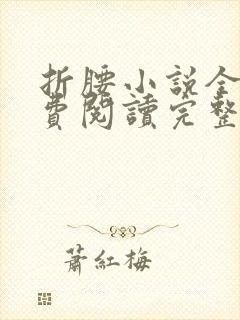 折腰小説全
費閱讀完整
蕭紅梅